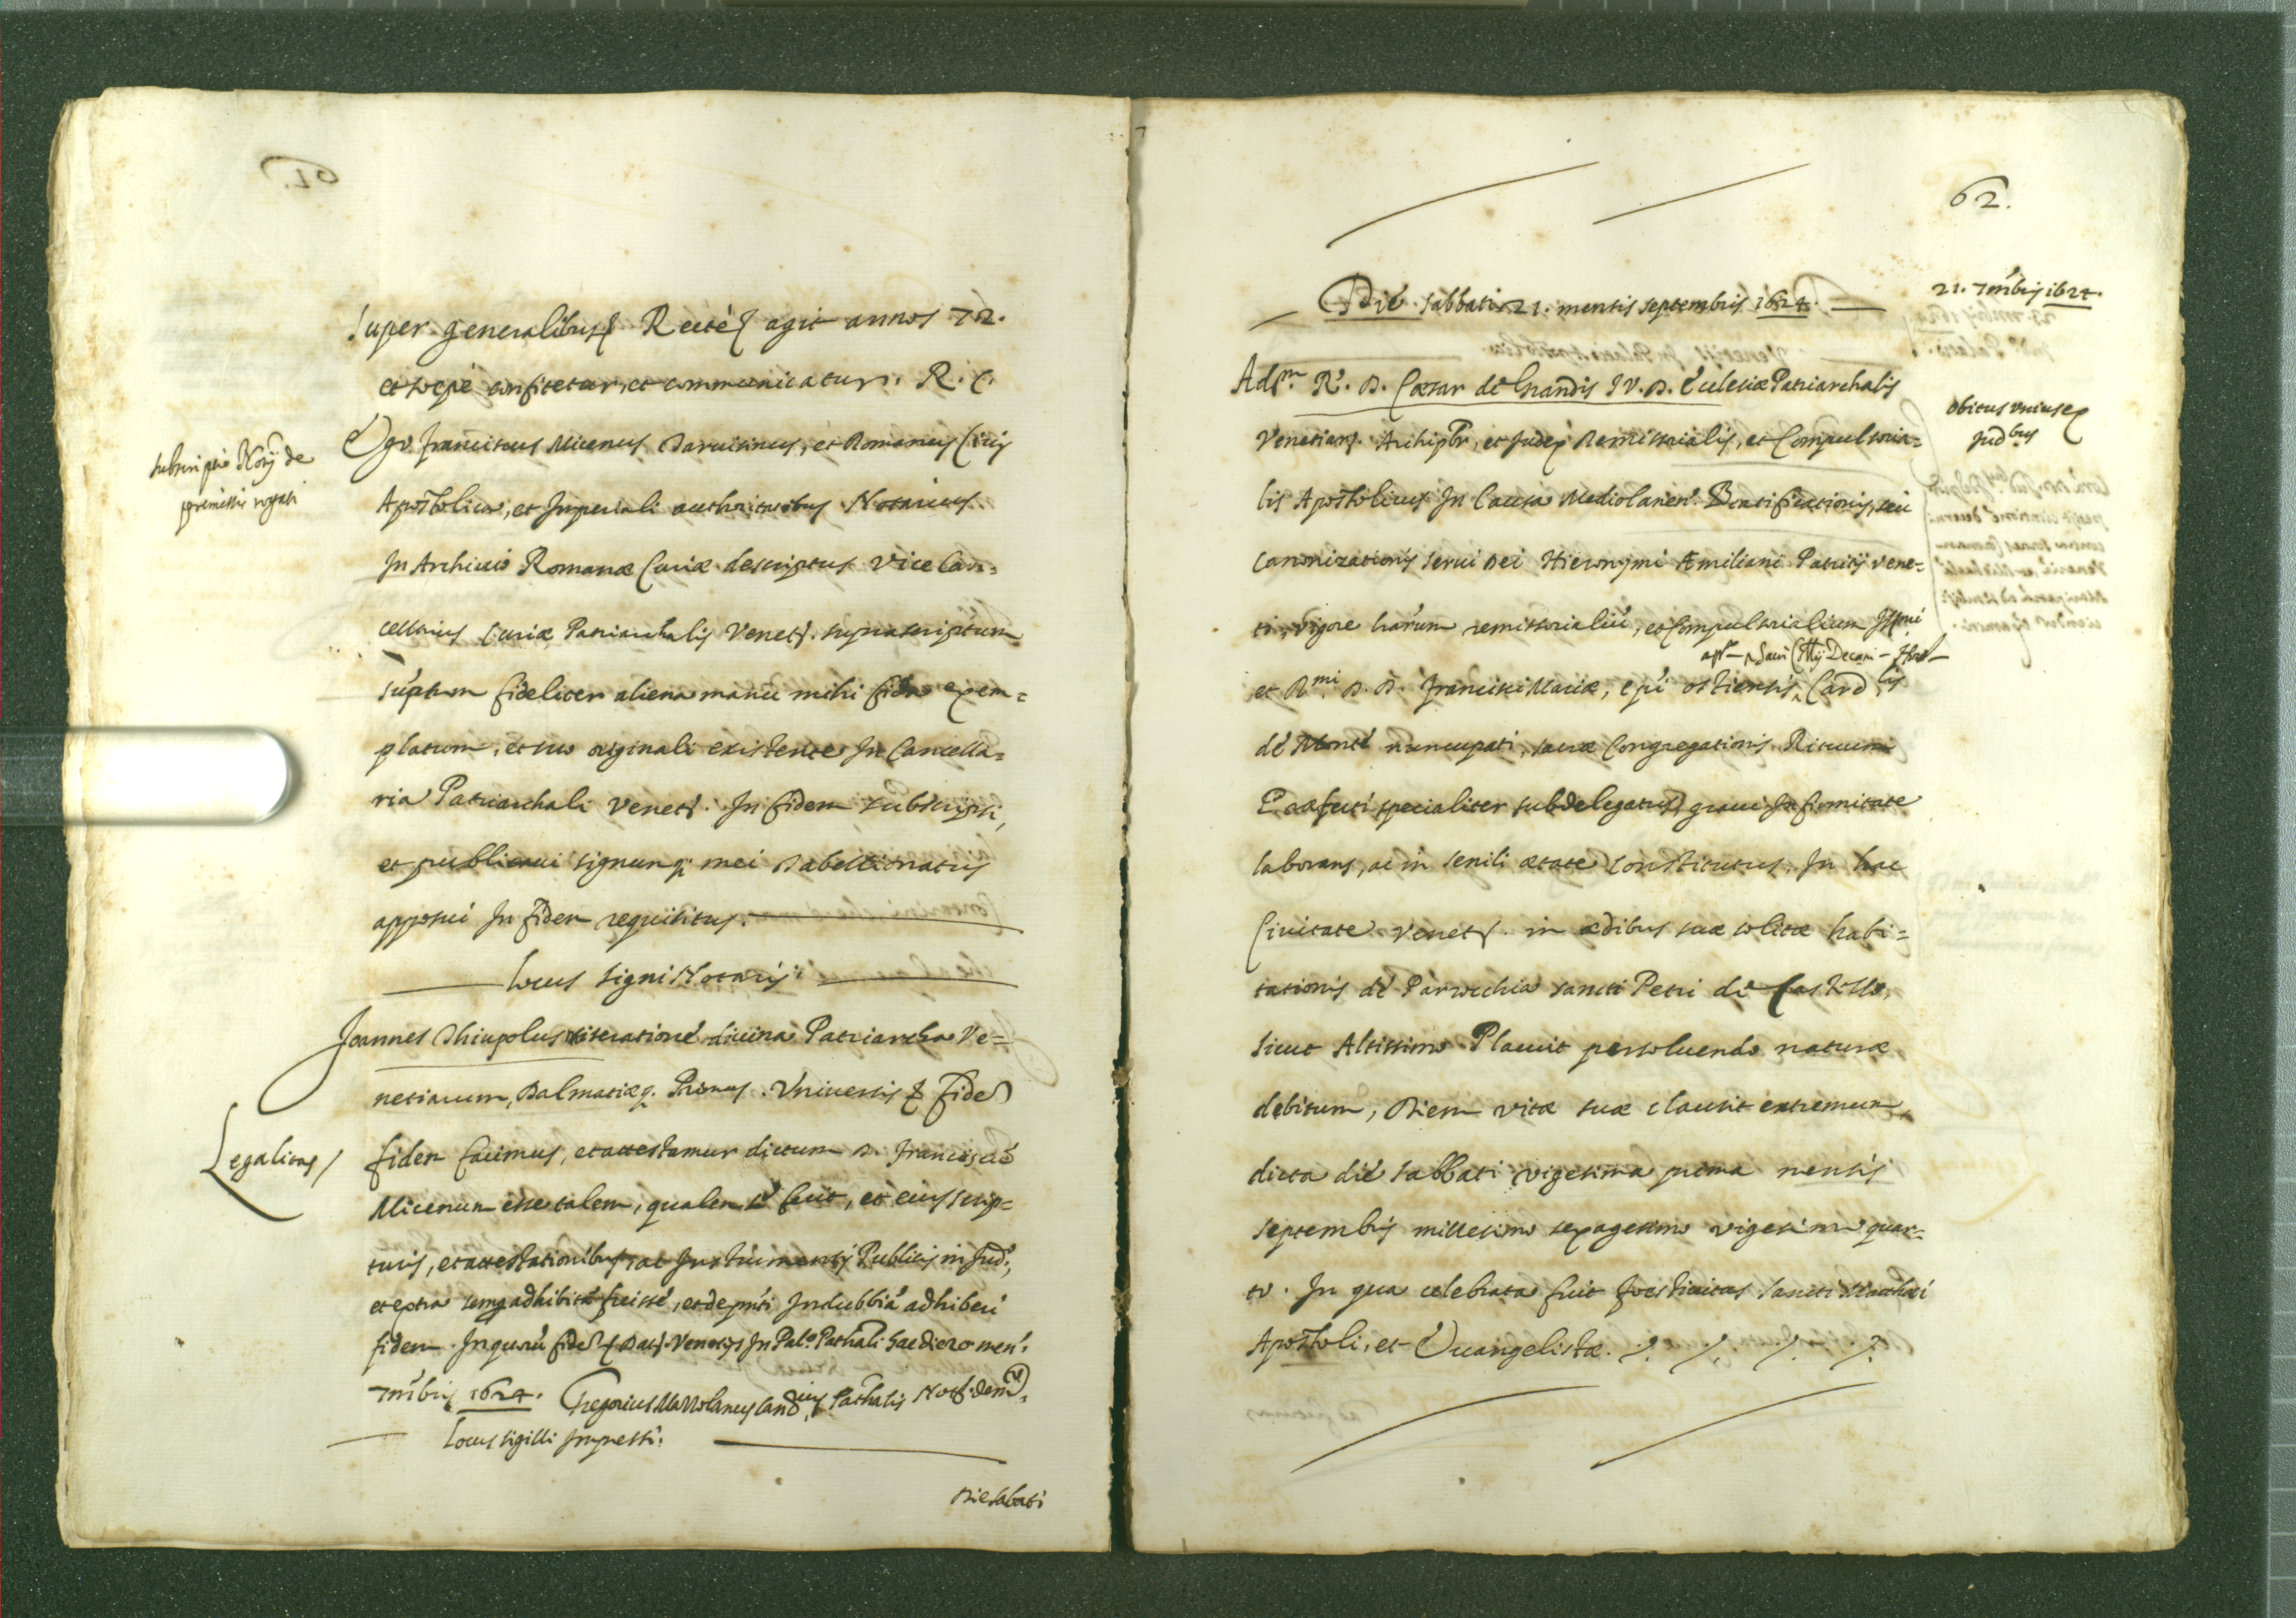 Super generalibus Recte agit annos 72.
et sepe confitetur, et communicatur. R. C.
Ego Franciscus Micenus Taruisinus, et Romanus Ciuis
Apostolica, et Imperiali authoritatibus Notarius
In Archiuio Romanæ Curiæ descriptus Vice Can=
cellarius Curiæ Patriarchalis Venet. suprascriptum
súptum fideliter aliena manu mihi fida exem=
platum, et suo originali existente In Cancella=
ria Patriarchali Venet. In fidem subscripsi,
et publicaui signumq; mei Tabellionatus
apposui In fidem requisitus.
Locus signi Notarij.
subscriptio Notij de
premissis rogati
Joannes Thiupolus miseratione diuina Patriarcha Ve=
netiarum, Dalmatiæq. Primas. Vniuersis & fidem
fidem facimus, et attestamur dictum D. Franciscú
Micenum esse talem, qualem se facit, et eius scrip=
turis, et attestationibus, ac Instrumentis Publicis in Jud.,
et extra semp adhibitá fuisse, et de pnti Indubbiá adhiberi
fidem. In quorú fidem Dat. Venetijs In Pal.o Patriali hac die 20 men.
7mbris 1624. Gregorius Cand.rius Pathalis Not. de m.to
Locus sigilli Impressi.
Legalitas
Die sabati
62.
Die sabbati 21. mensis septembris 1624.
21. 7mbris 1624.
Adm. R. D. Cæsar de Grandis I V. D. Ecclesiæ Patriarchalis
Venetiar. Archipbr, et Judex Remissorialis, et Compulsoria=
lis Apostolicus In Causa Mediolanen. Beatificationis, seu
Canonizationis serui Dei Hieronymi Æmiliani Patritij Vene=
ti, vigore harum remissorialiú, et Compulsorialium Illmi
et Rmi D. D. Francisci Mariæ, epi ostiensis, Card.lis
Sacri Collij Decani
de Monte nuncupati, sacræ Congregationis Rituum
Præfecti specialiter subdelegatus, graui Infirmitate
laborans, ac in senili ætate constitutus, In hac
Ciuitate Venet. in ædibus suæ solitæ habi=
tationis de Parochia sancti Petri de Castello,
sicut Altissimo Placuit persoluendo naturæ
debitum, Diem vitæ suæ clausit extremum,
dicta die sabbati vigesima prima mensis
septembris millesimo sexagesimo vigesimo quar=
to. In qua celebrata fuit festiuitas sancti Matthæi
Apostoli, et Euangelistæ.
obitus vnius ex
Judbus